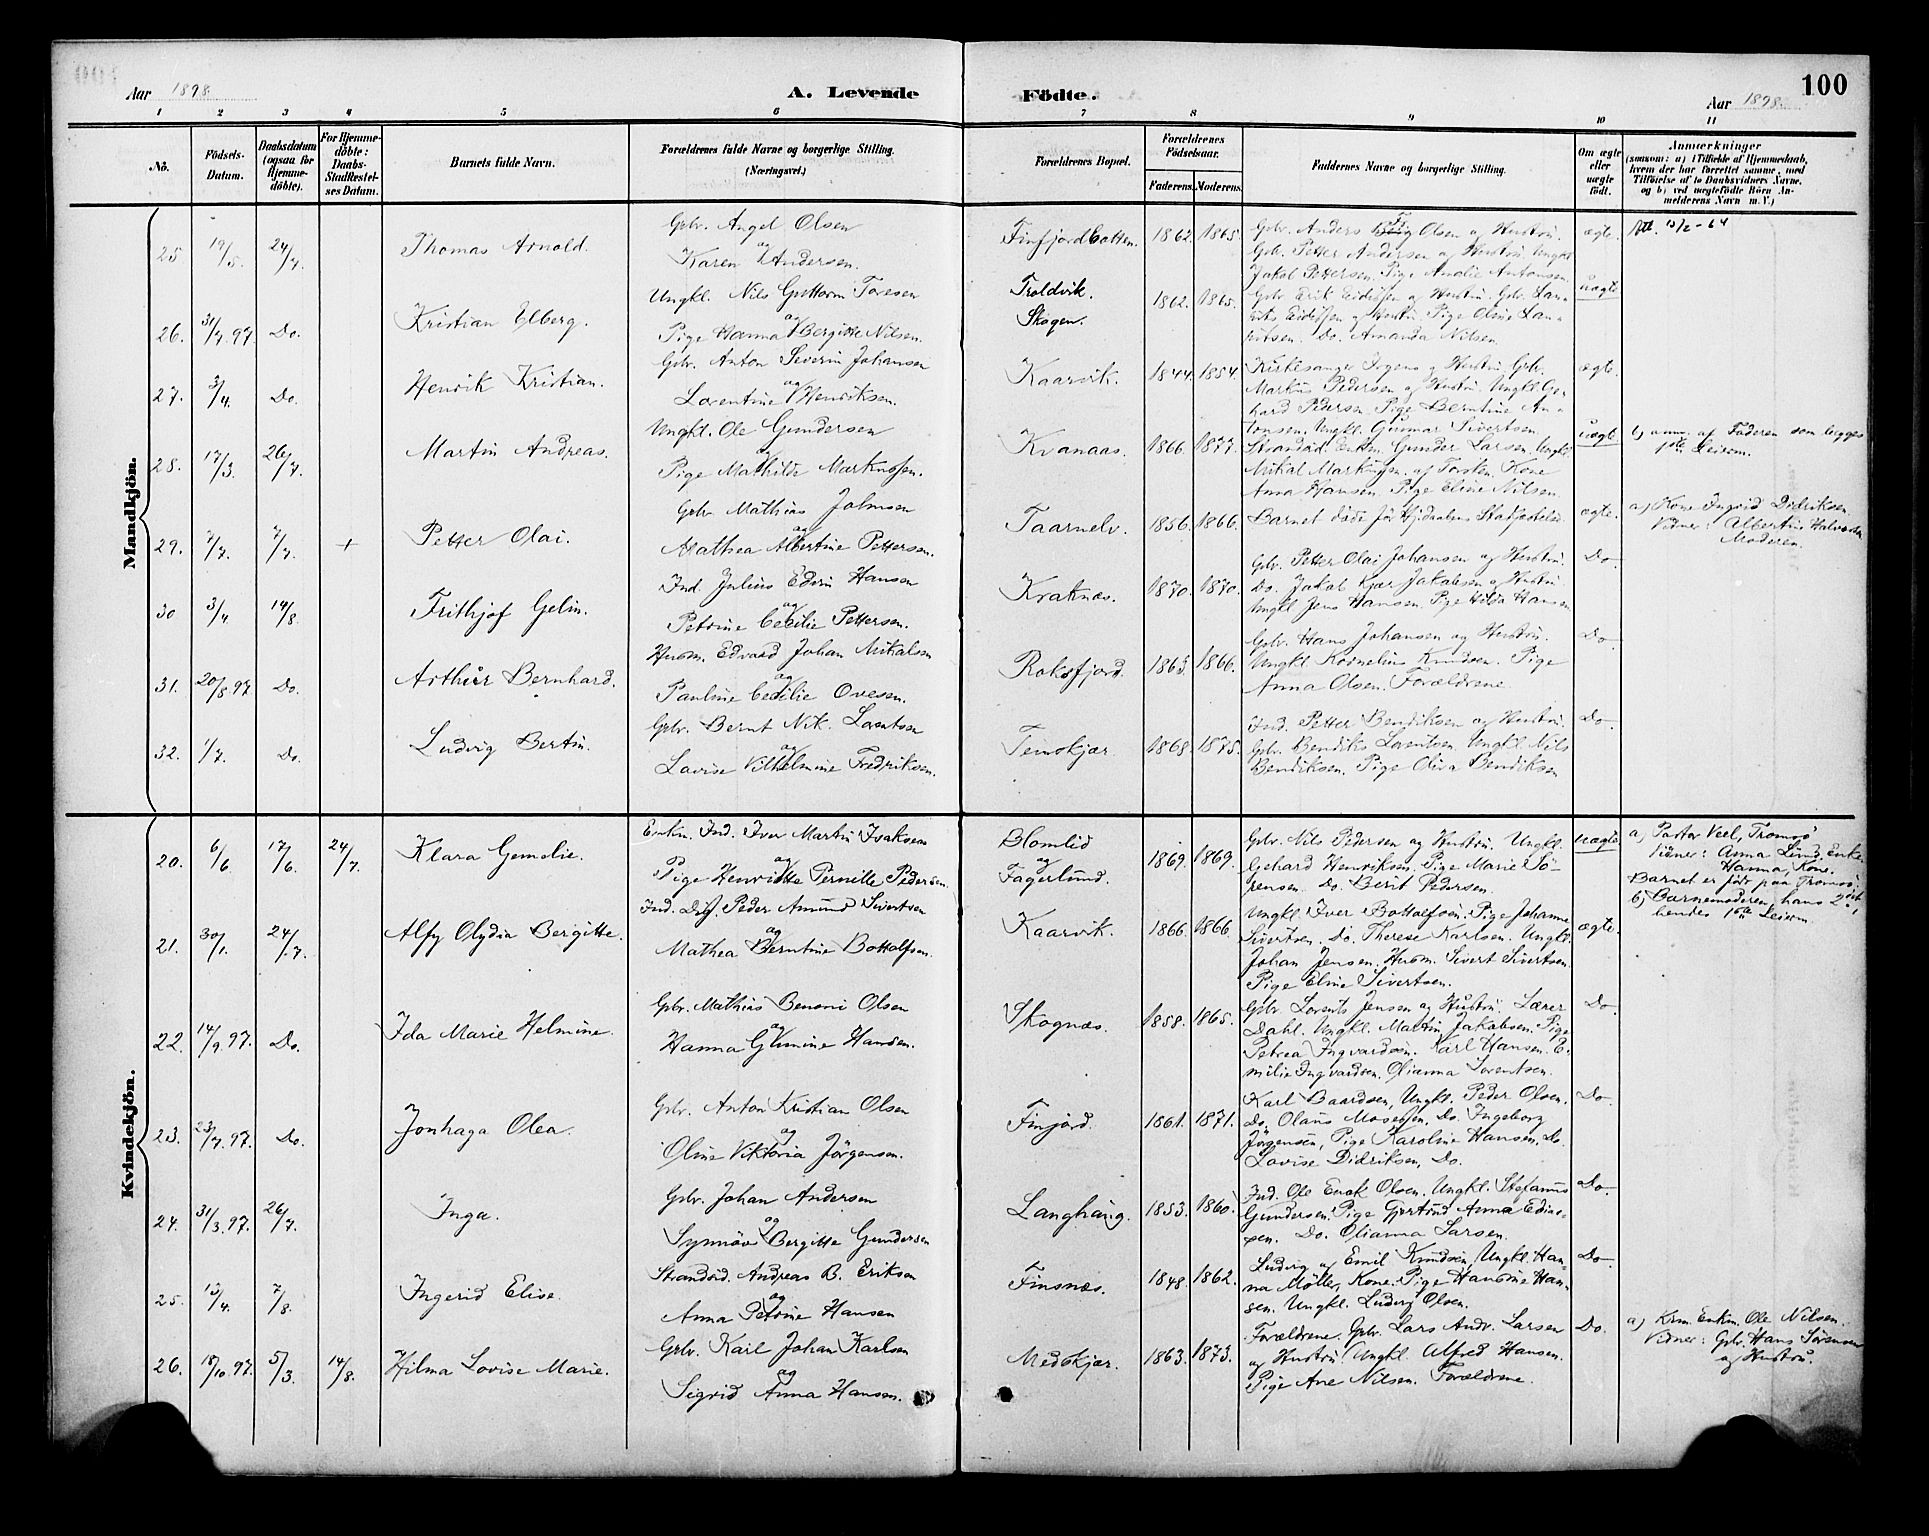 100
Aar 1898.
A. Levende Fødte.
Aar 1898.
1 2 3 4 5 6 7 8 9 10 11
No.
Födsels-Datum.
Daabsdatum (ogsaa for Hjemme-döbte).
For Hjemme-döbte: Daabs-Stadfæstel-ses Datum.
Barnets fulde Navn.
Forældrenes fulde Navne og borgerlige Stilling. (Næringsvei.)
Forældrenes Bopæl.
Forældrenes Födselsaar.
Faderens. Moderens.
Faddernes Navne og borgerlige Stilling.
Om ægte eller uægte födt.
Anmærkninger
(saasom: a) i Tilfælde af Hjemmedaab,
hvem der har forrettet samme, med
Tilföielse af to Daabsvidners Navne,
og b) ved uægtefödte Börn An-
melderens Navn m. V.)
Mandkjön.
25 19/5. 24/7. Thomas Arnold.
Gbr. Angel Olsen
og
Karen Andersen.
Finfjordbotten. 1862. 1865.
Gbr. Anders Olsen og Hustru.
Gbr. Petter Andersen og Hustru. Ungkl.
Jakob Pettersen. Pige Amalie Antonsen.
ægte. 13/2-64
26. 31/7.97. Do. Kristian Elberg.
Ungkl. Nils Guttorm Toresen
og
Pige Hanna Bergitte Nilsen.
Troldvik.
Skogen.
1862. 1865.
Gbr. Erik Eidissen og Hustru. Gbr. Lau-
rits Eidissen og Hustru. Pige Oline Lau-
ritsen. Do. Amanda Nilsen.
uægte
27. 3/4. Do. Henrik Kristian.
Gbr. Anton Severin Johansen
og
Lorentine Henriksen.
Kaarvik. 1844. 1854.
Kirkesanger Irgens og Hustru. Gbr.
Markus Pedersen og Hustru. Ungkl. Ge-
hard Pedersen. Pige Berntine An-
tonsen. Ungkl. Gunnar Sivertsen.
ægte.
28. 17/3. 26/7. Martin Andreas.
Ungkl. Ole Gundersen
og
Pige Mathilde Markussen.
Kvanaas. 1866. 1877.
Strandsid. Enkm. Gunder Larsen. Ungkl.
Mikal Markussen. af Torsken. Kone
Anna Hansen. Pige Eline Nilsen.
uægte
b) anm. af Faderen som begges
1ste Leierm.
29. 7/7. 7/7. + Petter Olai.
Gbr. Mathias Johnsen
og
Mathea Albertine Pettersen.
Taarnelv. 1856. 1866.
Barnet döde för Hjdaabens Stadfæstelse.
ægte.
a) Kone Ingrid Didriksen.
Vidner: Albertin Halvorsen
Moderen.
30 3/4. 14/8. Frithjof Gelin.
Ind. Julius Edvin Hansen
og
Petrine Cecilie Pettersen.
Kraknæs. 1870. 1870.
Gbr. Petter Olai Johansen og Hustru.
Do. Jakob Kjær Jakobsen og Hustru.
Ungkl Jens Hansen. Pige Hilda Hansen.
Do.
31. 20/8 97. Do. Arthur Bernhard.
Husm. Edvard Johan Mikalsen
og
Pauline Cecilie Ovesen.
Roksfjord. 1863. 1866.
Gbr. Hans Johansen og Hustru.
Ungkl Kornelius Knudsen. Pige
Anna Olsen. Forældrene.
Do
32. 1/7. Do. Ludvig Bertin.
Gbr. Bernt Nik. Lorentsen
og
Lovise Vilhelmine Fredriksen.
Temskjær. 1868. 1875.
Ind. Petter Bendiksen og Hustru.
Gbr. Bendiks Lorentsen. Ungkl Nils
Bendiksen. Pige Oliva Bendiksen
Do
Kvindekjön.
20. 6/6. 17/6. 24/7. Klara Gemelie.
Enkm. Ind. Iver Martin Isaksen
og
Pige Henriette Pernille Pedersen.
Blomlid
og
Fagerlund.
1869. 1869.
Gbr. Nils Pedersen og Hustru. Ungkl.
Gehard Henriksen. Pige Marie Sö-
rensen. Do. Berit Pedersen.
uægte
a) Pastor Veel, Tromsö
Vidner: Anna Lind, Enke.
Hanna, Kone.
Barnet er födt paa Tromsö.
b) Barnemoderen, hans 2det
hendes 1ste Leierm.
21. 30/1. 24/7. Alfy Olydia Bergitte.
Ind. Disf. Peder Amund Sivertsen
og
Mathea Berntine Bottolfsen.
Kaarvik. 1866. 1866.
Ungkl Iver Bottolfsen. Pige Johanne
Sivertsen. Do. Therese Karlsen. Ungkl.
Johan Jensen. Husm. Sivert Sivertsen.
Pige Eline Sivertsen.
ægte.
22. 14/9 97. Do. Ida Marie Helmine.
Gbr. Mathias Benoni Olsen
og
Hanna Hansen.
Skognæs. 1858. 1865.
Gbr Lorents Jensen og Hustru. Lærer
Dahl. Ungkl. Martin Jakobsen. Pige
Petrea Ingvardsen. Karl Hansen. E-
milie Ingvardsen. Olianna Lorentsen.
Do.
23. 23/7 97. Do. Jonhaga Olea.
Gbr. Anton Kristian Olsen
og
Oline Viktoria Jörgensen.
Finjord. 1861. 1871.
Karl Baardsen, Ungkl. Peder Olsen.
Do. Olaus Mosessen. Do. Ingeborg
Jörgensen, Pige Karoline Hansen. Do.
Lovise Didriksen, Do.
Do.
24. 31/3.97. 26/7. Inga.
Gbr. Johan Andersen
og
Synnöv Bergitte Gundersen
Langhaug. 1853. 1860.
Ind. Ole Enok Olsen. Ungkl. Stefanus
Gundersen. Pige Gjertrud Anna Edias-
sen. Do. Olianna Larsen.
Do.
25. 13/4. 7/8. Ingerid Elise.
Strandsid. Andreas B. Eriksen
og
Anna Petrine Hansen
Finsnæs. 1848. 1862.
Ludvig og Emil Knudsen, Ungkl. Han-
na Möller, Kone. Pige Hansine Han-
sen. Ungkl. Ludvig Olsen.
Do.
26. 18/10 97. 5/3. 14/8. Hilma Lovise Marie.
Gbr. Karl Johan Karlsen
og
Sigrid Anna Hansen.
Medskjær. 1863. 1873.
Forældrene. Gbr. Lars Andr. Larsen
og Hustru. Ungkl. Alfred Hansen.
Pige Ane Nilsen. Forældrene.
Do.
a) Enkm. Ole Nilsen.
Vidner: Gbr. Hans Sörensen
og Hustru.